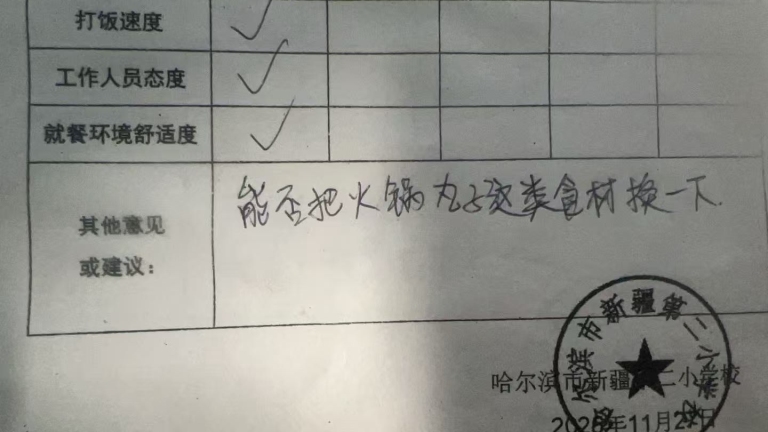 打饭速度
工作人员态度
就餐环境舒适度
其他意见
或建议：
能否把火锅丸子这类食材换一下.
哈尔滨市新疆第二小学校
11月2日